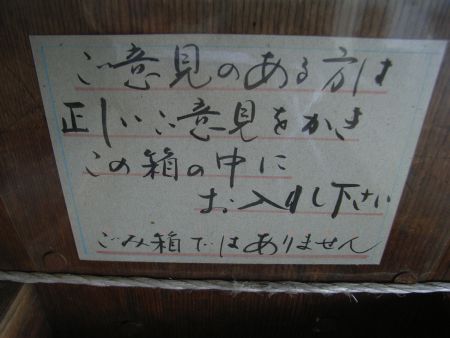 ご意見のある方は
正しいご意見をかき
この箱の中に
お入れし下さい
ごみ箱ではありません